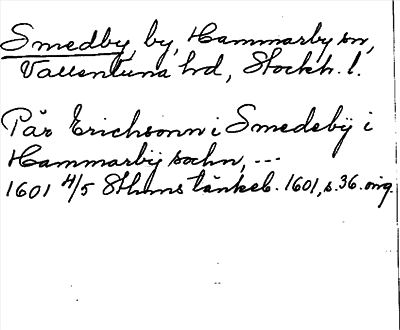 Smedby, by, Hammarby sn,
Vallentuna hd, Stockh. l.
Pär Erichsonn i Smedebÿ i
Hammarbÿ sochn, ---
1601 4/5 Sthms tänkeb. 1601, s. 36. orig.